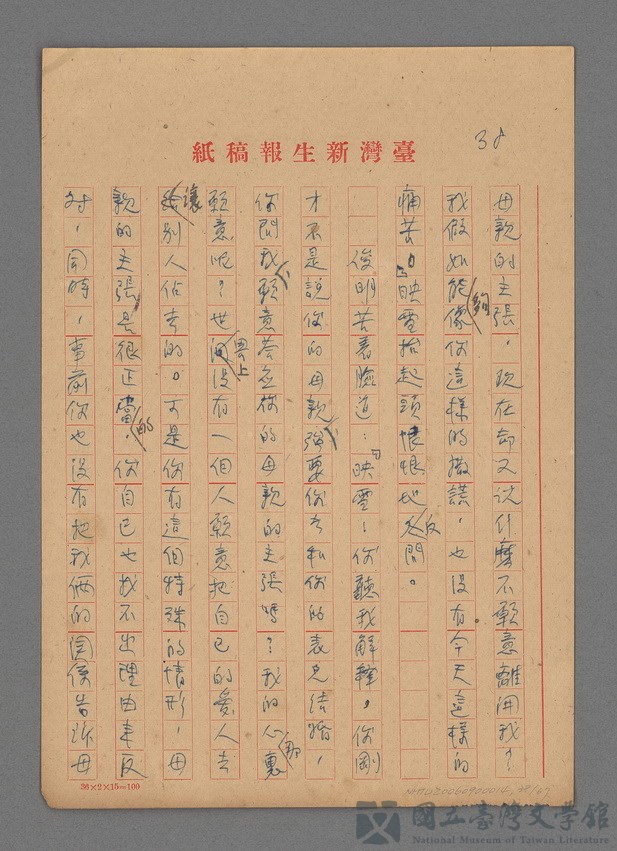 38
臺灣新生報稿紙
母親的主張，現在却又說什麼不願意離開我？
我假如能夠像你這樣的撒謊，也沒有今天這樣的
痛苦。」映雪抬起頭恨恨地反問。
俊明苦着臉道：「映雪！你聽我解釋。你剛
才不是說你的母親強要你去和你的表兄結婚，
你問我願意答應你的母親的主張嗎？我的心裏那
願意呢？世界上沒有一個人願意把自己的愛人去
讓別人佔去的。可是你有這個特殊的情形，母
親的主張是很正當的，你自己也找不出理由來反
對，同時，事前你也沒有把我倆的關係告訴母
36×2×15=100
NMTL20060900014
國立臺灣文學館
National Museum of Taiwan Literature